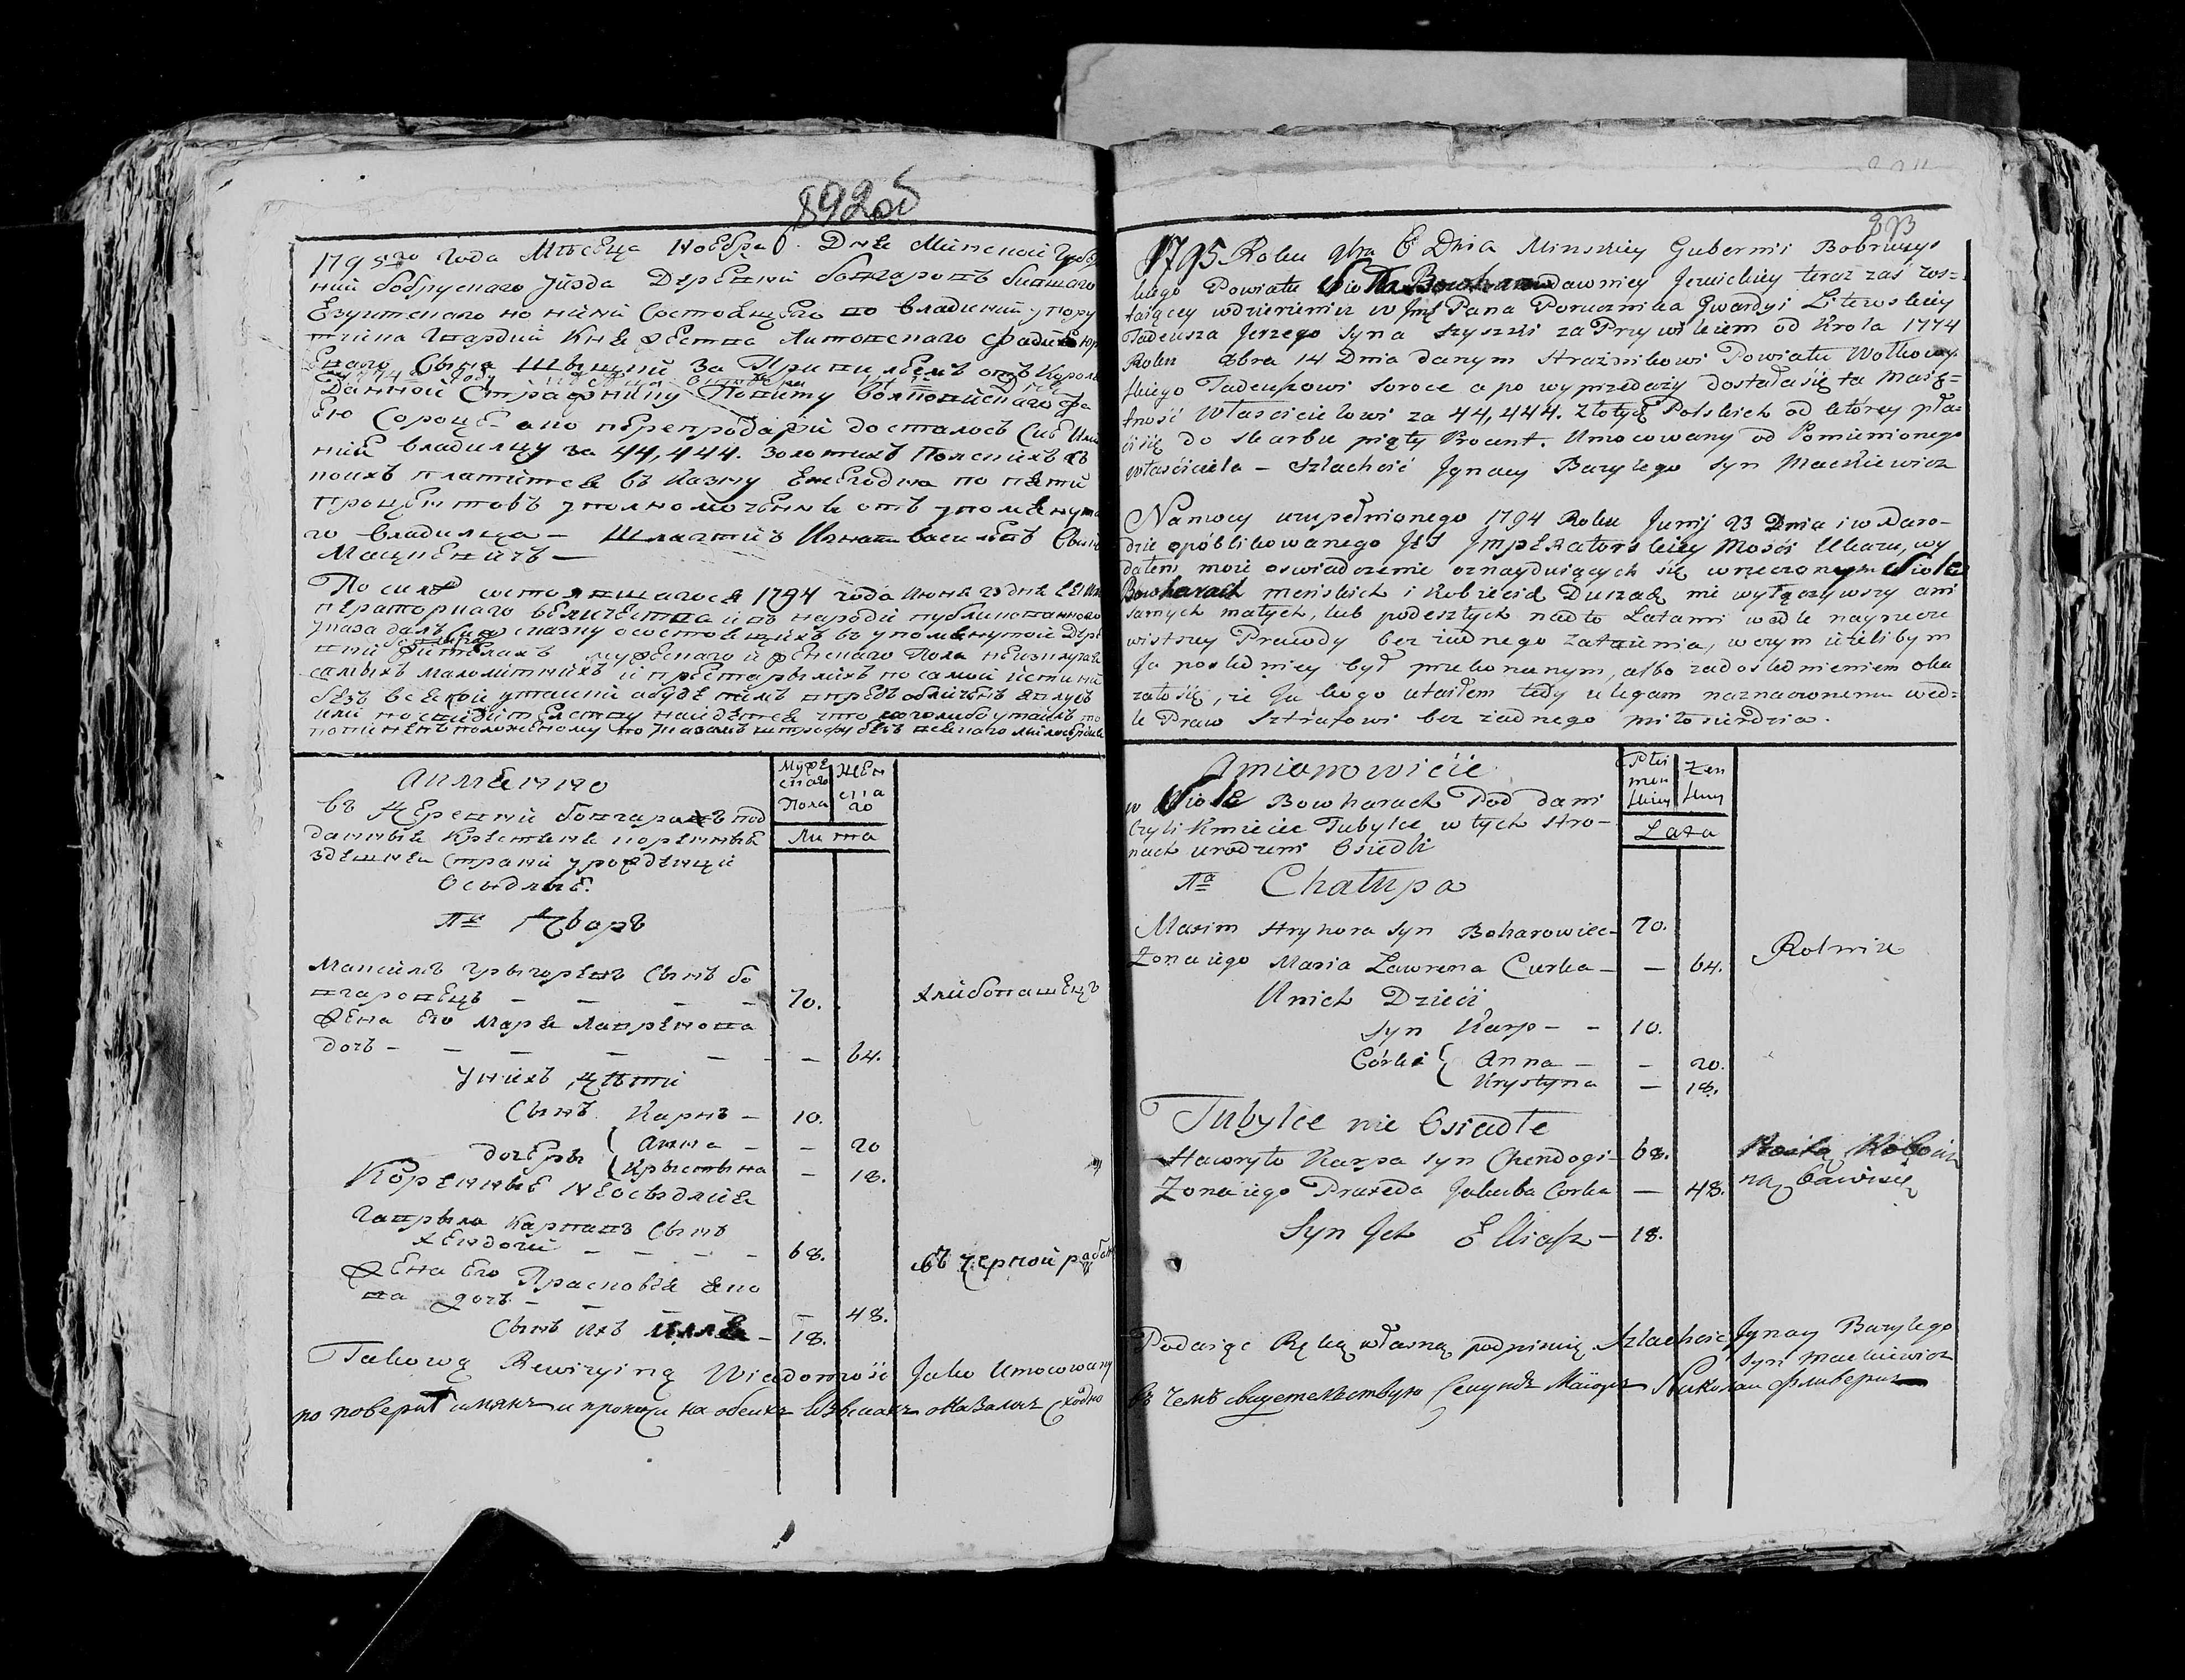 892 об
1795го Года Мѣсеца Ноебра 6 Дне Минской Губер
ний бобруского Уйзда Деревни бовгаровъ бившаго
Езуитскаго но нине Состоящего во владений у пору
Гвардий Литовскаго
Сына за Привилиемъ отъ Короле
Данной Стражнику Повиту волковийскаго
Сороце а по перепродажи досталось Сие Име
ние владилцу за 44,444. золотихъ Полскихъ
платитсе въ Казну Ежегодна по пяти
процентовъ уполномоченни отъ упомянута
го владилца — Шляхтичъ Игнати василевъ Синъ
Мацкевичъ —
По силе состоявшагосе 1794 года Июне 23 дне ЕЕ Им
ператорнаго величества и въ народе публикованнаго
указа далъ сию сказку о состоящихъ въ упомянутой Дере
вни жителахъ мужескаго и женскаго Пола неизключае
самихъ малолитнихъ и престарылихъ по самой истини
безъ всекой утайки
потиненъ положеному по Указамъ штрофу безъ всекаго милосердия
Аимянно
въ Деревни бовгаровъ под
данные Крестяне коренные
здешней страни урожденци
Осидлые.
Муже
скаго
Пола
Жен
ска
го
Лита
1й Дворъ
Максимъ григоревъ Сынъ бо
вгаровецъ — — — — 70.
Хлибопашецъ
Жена Его Маря Лавренова
дочъ — — — — — — 64.
У нихъ Дѣти
Сынъ Карпъ — 10.
дочеры { Анна — — 20
Крыстына — 18.
Коренные Неосидлие
Гаврыло Карповъ Сынъ
Хендоги — — — — 68.
въ черной работе
Жена Его Прасковъе Яко
ва дочъ — — — — 48.
Сынъ ихъ Илля — 18.
Takową Rewizyiną Wiadomość Jako Umocowany
по поверки имянъ и протчи на обеихъ езыкахъ оказалось сходно
893
1795 Roku 9bra 6 Dnia Minskiey Gubernii Bobruys
kiego Powiatu Sioła Bowharow dawniey Jezuickiey teraz zaś zos-
taiącey wdzierżeniu w Jmć Pana Porucznika Gwardyi Litewskiey
Tadeusza Jerzego syna Szyszki za Przywileiem od Krola 1774
Roku 14 Dnia danym Strażnikowi Powiatu Wołkowy
skiego Tadeuszowi Soroce a po wyprzedaży dostała się ta Maię=
tność Właścicielowi za 44,444. złotych Polskich od którey pła-
ci się do skarbu piąty Procent. Umocowany od Pomienionego
właściciela — Szlachcic Jgnacy Bazylego syn Mackiewicz
Namocy uzupełnionego 1794 Roku Junij 23 Dnia i w Naro-
dzie opóblikowanego Jeś Jmperatorskiey Mości Ukazu, wy
dałem moie oswiadczenie oznayduiących się wrzeczonym Siole
Bowharach męńskich i Kobiecich Duszach nie wyłączywszy ani
samych małych, lub podeszłych nadto Latami wedle nayrzecze
wistszey Prawdy bez żadnego zataienia, w czym ieżelibym
Ja posledniey był przekonanym, albo zadoslednieniem oka
załosię, że Ja kogo utaiłem tedy ulegam naznaczonemu wed-
le Praw Sztrafowi bez żadnego miłosierdzia.
Amianowicie
w Siole Bowharach Pod dani
czyli Kmiecie Tubylce w tych stro-
nach urodzeni Osiedli
Płci
męn
skiey
Żen
skiey
Lata
1a Chałupa
Maxim Hryhora syn Boharowiec — 70.
Rolnik
Żona iego Maria Lawrena Curka — — 64.
Unich Dzieci
Syn Karp — — 10.
Córki { Anna — — 20.
Krystyna — 18.
Tubylce nie Osiadłe
Hawryło Karpa syn Chendogi — 68.
Robociz
ną bawisię
Żona iego Praxeda Jakuba Corka — 48.
Syn Jch Elliasz — 18.
Podaiąc Ręką własną podpisuię Szlachcic Jgnacy Bazylego
syn Mackiewicz
въ чемъ свидетелствую Секундъ Маіоръ Николаи Фливеркъ